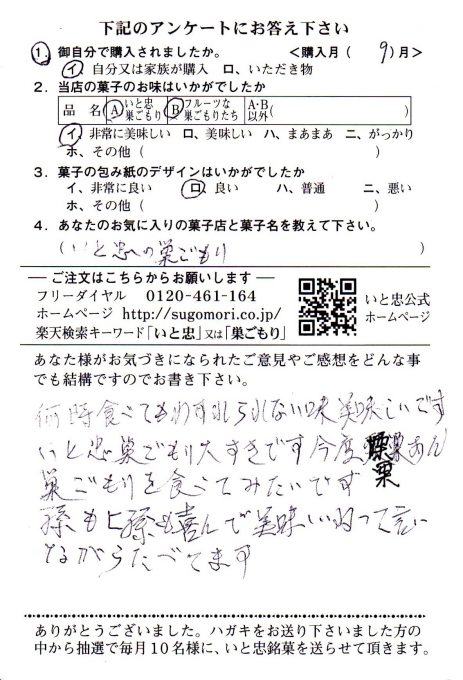 下記のアンケートにお答え下さい
1. 御自分で購入されましたか。 <購入月( 9)月>
イ、自分又は家族が購入 ロ、いただき物
2. 当店の菓子のお味はいかがでしたか
品 名 A いと忠巣ごもり B フルーツな巣ごもりたち A・B以外( )
イ、非常に美味しい ロ、美味しい ハ、まあまあ ニ、がっかり
ホ、その他( )
3. 菓子の包み紙のデザインはいかがでしたか
イ、非常に良い ロ、良い ハ、普通 ニ、悪い
ホ、その他( )
4. あなたのお気に入りの菓子店と菓子名を教えて下さい。
(いと忠の巣ごもり )
― ご注文はこちらからお願いします ―
フリーダイヤル 0120-461-164
ホームページ http://sugomori.co.jp/
楽天検索キーワード「いと忠」又は「巣ごもり」
いと忠公式
ホームページ
あなた様がお気づきになられたご意見やご感想をどんな事
でも結構ですのでお書き下さい。
何時食べてもわすれられない味 美味しいです
いと忠巣ごもり大すきです今度 栗あん
巣ごもりを食べてみたいです
孫もヒ孫も喜んで美味いねって言い
ながらたべてます
ありがとうございました。ハガキをお送り下さいました方の
中から抽選で毎月10名様に、いと忠銘菓を送らせて頂きます。